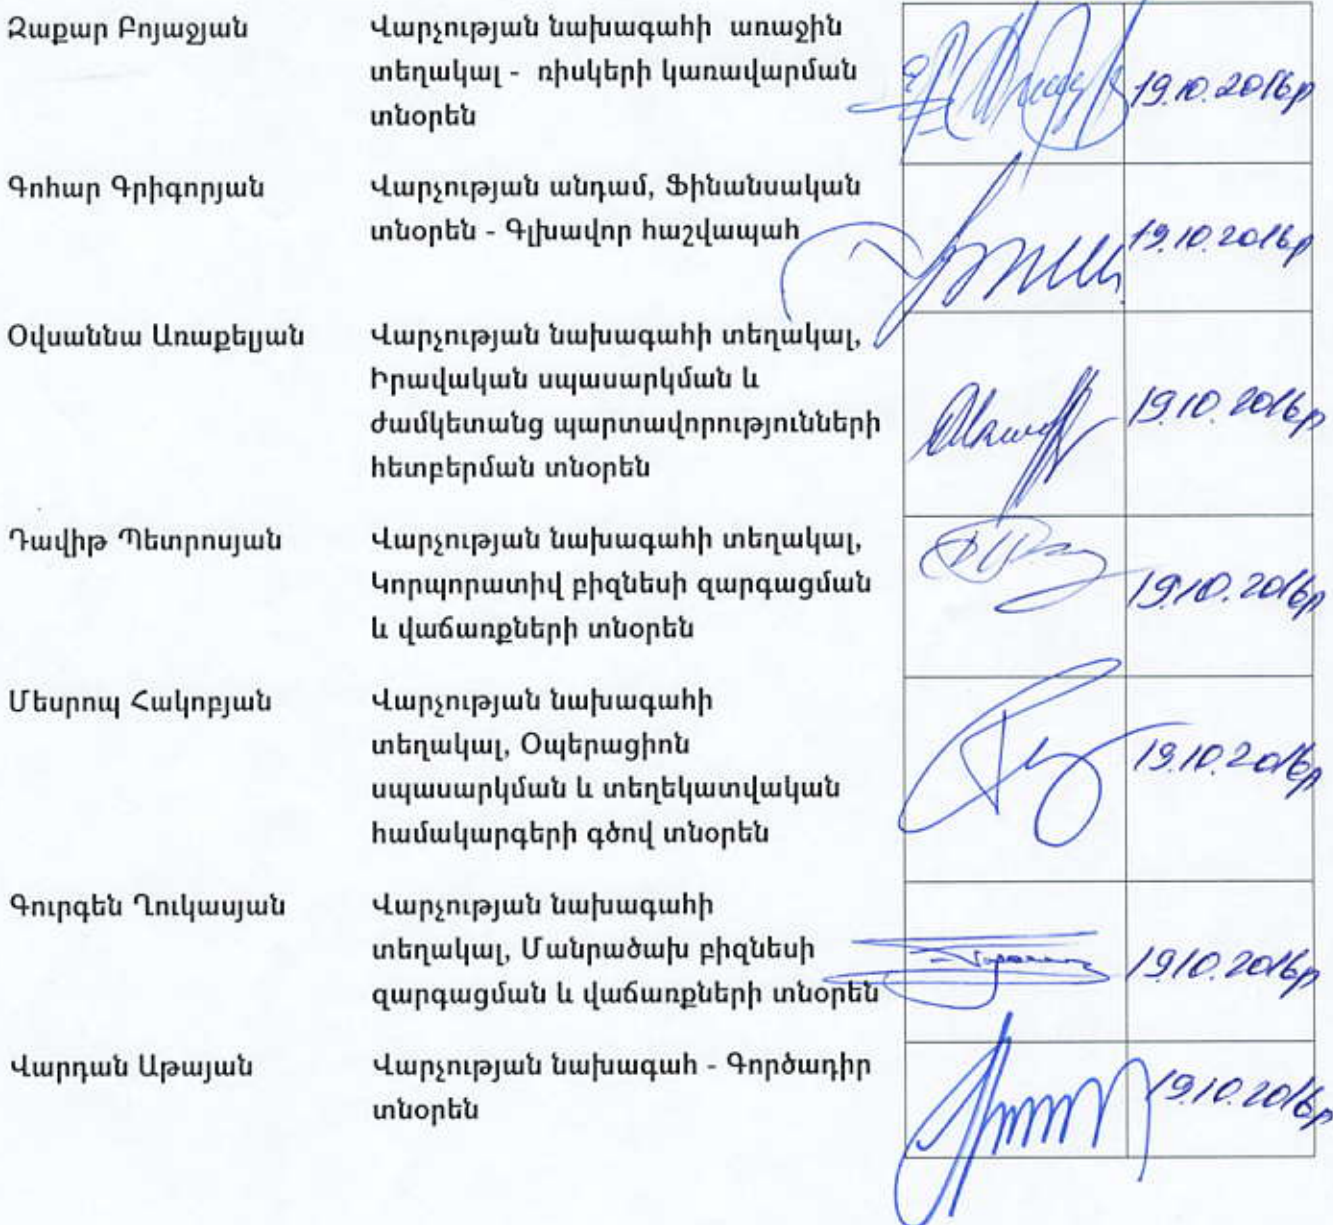 Զաքար Բոյաջյան
Վարչության նախագահի առաջին
տեղակալ - ռիսկերի կառավարման
տնօրեն
19.10.2016թ
Գոհար Գրիգորյան
Վարչության անդամ, Ֆինանսական
տնօրեն - Գլխավոր հաշվապահ
19.10.2016թ
Օվսաննա Առաքելյան
Վարչության նախագահի տեղակալ,
Իրավական սպասարկման և
ժամկետանց պարտավորությունների
հետբերման տնօրեն
19.10.2016թ
Դավիթ Պետրոսյան
Վարչության նախագահի տեղակալ,
Կորպորատիվ բիզնեսի զարգացման
և վաճառքների տնօրեն
19.10.2016թ
Մեսրոպ Հակոբյան
Վարչության նախագահի
տեղակալ, Օպերացիոն
սպասարկման և տեղեկատվական
համակարգերի գծով տնօրեն
19.10.2016թ
Գուրգեն Ղուկասյան
Վարչության նախագահի
տեղակալ, Մանրածախ բիզնեսի
զարգացման և վաճառքների տնօրեն
19.10.2016թ
Վարդան Աթայան
Վարչության նախագահ - Գործադիր
տնօրեն
19.10.2016թ